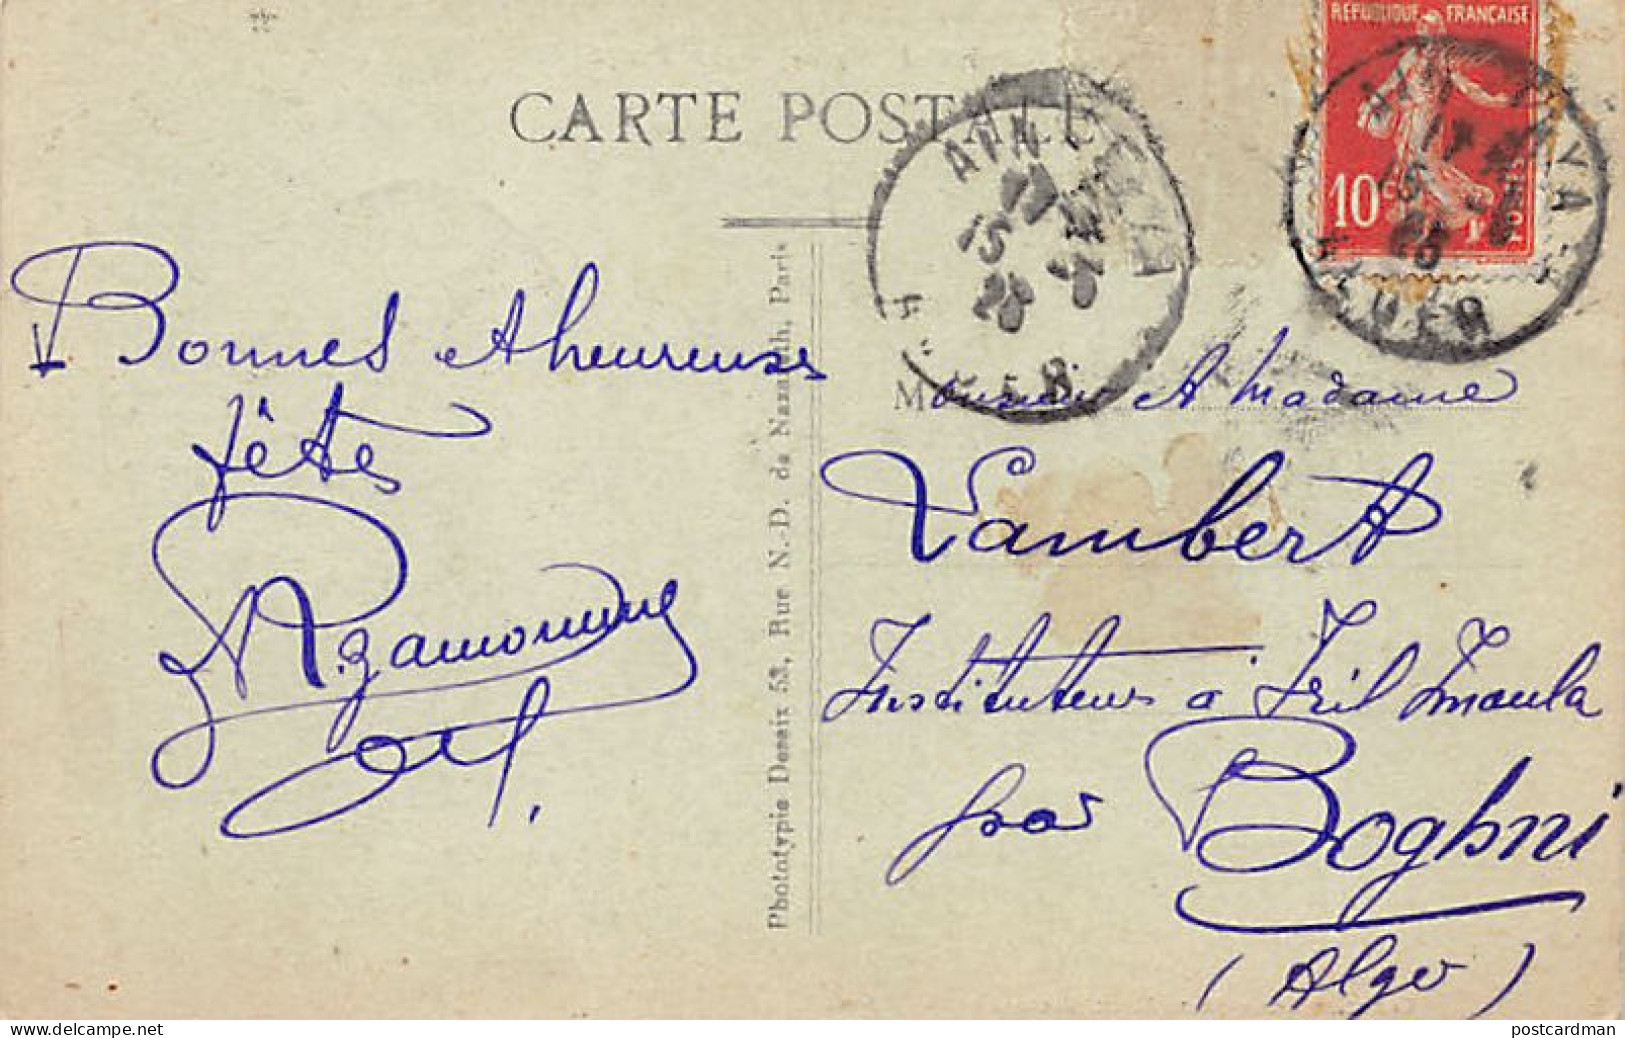 CARTE POSTALE
REPUBLIQUE FRANÇAISE
10c
AIN
ALGER
Bonnes et heureuses
fêtes
Monsieur et Madame
Lambert
Instituteurs à Iril Imoula
par Boghni
(Alger)
Phototypie Desaix 53, Rue N.-D. de Nazareth, Paris
Website : delcampe.net
postcardman